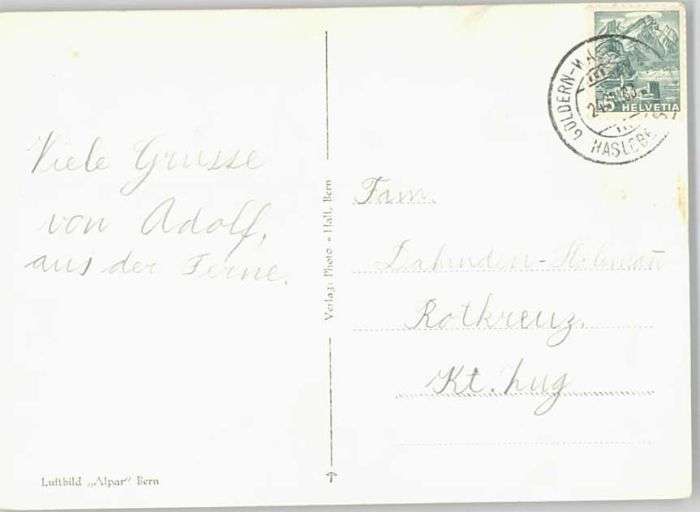 Viele Grüsse
von Adolf,
aus der Ferne.
Luftbild „Alpar" Bern
Verlag: Photo - Hall, Bern
HELVETIA
GOLDERN-
HASLEBE
Fam.
Dahinden-
Rotkreuz.
Kt. Zug